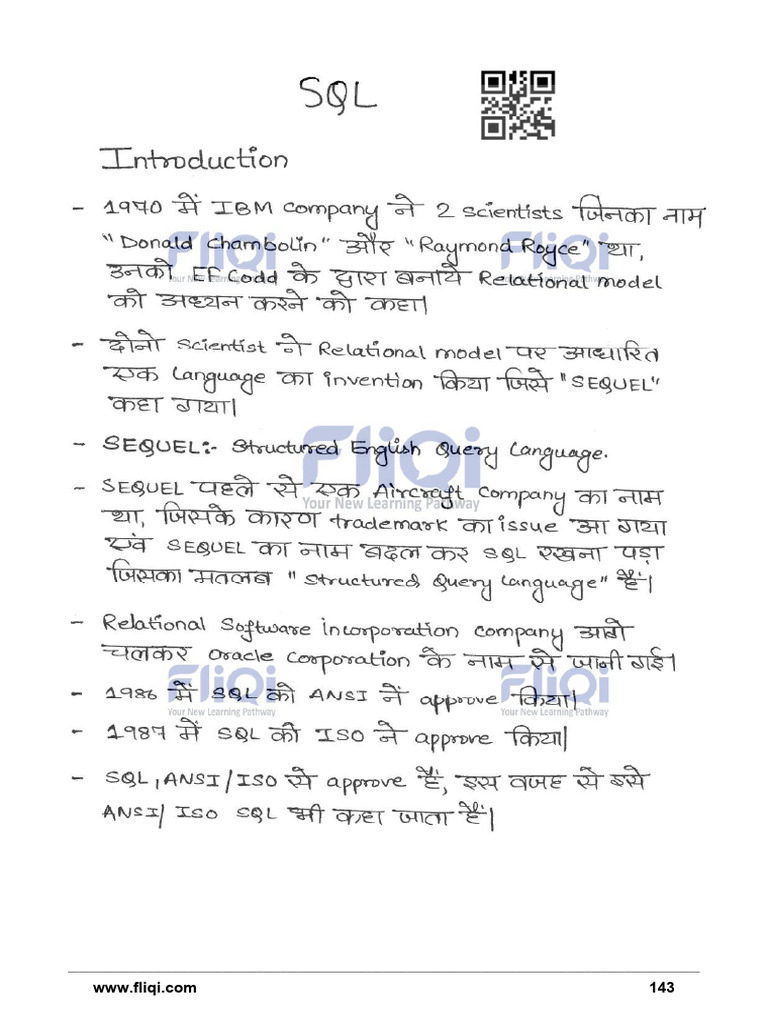 SQL
Introduction
- 1970 में IBM Company ने 2 scientists जिनका नाम
"Donald Chambolin" और "Raymond Royce" था,
उनको EF Codd के द्वारा बनाये Relational model
को अध्यन करने को कहा।
- दोनो scientist ने Relational model पर आधारित
एक Language का invention किया जिसे "SEQUEL"
कहा गया।
- SEQUEL:- Structured English Query Language.
- SEQUEL पहले से एक Aircraft Company का नाम
था, जिसके कारण trademark का issue आ गया
एवं SEQUEL का नाम बदल कर SQL रखना पड़ा
जिसका मतलब "Structured Query Language" हैं।
- Relational Software incorporation company आगे
चलकर Oracle Corporation के नाम से जानी गई।
- 1986 में SQL को ANSI नें approve किया।
- 1987 में SQL को ISO ने approve किया।
- SQL, ANSI/ISO से approve हैं, इस वजह से इसे
ANSI/ISO SQL भी कहा जाता हैं।
FliQi
Your New Learning Pathway
www.fliqi.com 143